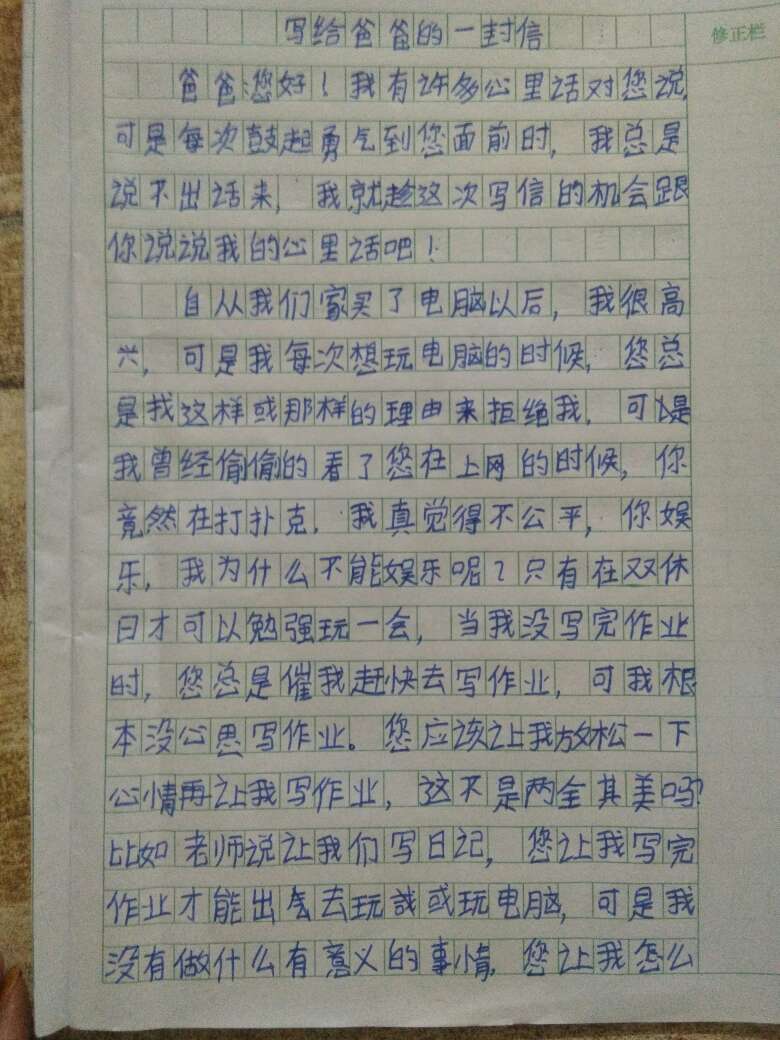 修正栏
写给爸爸的一封信
爸爸:您好!我有许多心里话对您说,
可是每次鼓起勇气到您面前时,我总是
说不出话来,我就趁这次写信的机会跟
你说说我的心里话吧!
自从我们家买了电脑以后,我很高
兴,可是我每次想玩电脑的时候,您总
是找这样或那样的理由来拒绝我,可是
我曾经偷偷的看了您在上网的时候,你
竟然在打扑克,我真觉得不公平,你娱
乐,我为什么不能娱乐呢?只有在双休
日才可以勉强玩一会,当我没写完作业
时,您总是催我赶快去写作业,可我根
本没心思写作业。您应该让我放松一下
心情再让我写作业,这不是两全其美吗?
比如老师说让我们写日记,您让我写完
作业才能出去玩或玩电脑,可是我
没有做什么有意义的事情,您让我怎么